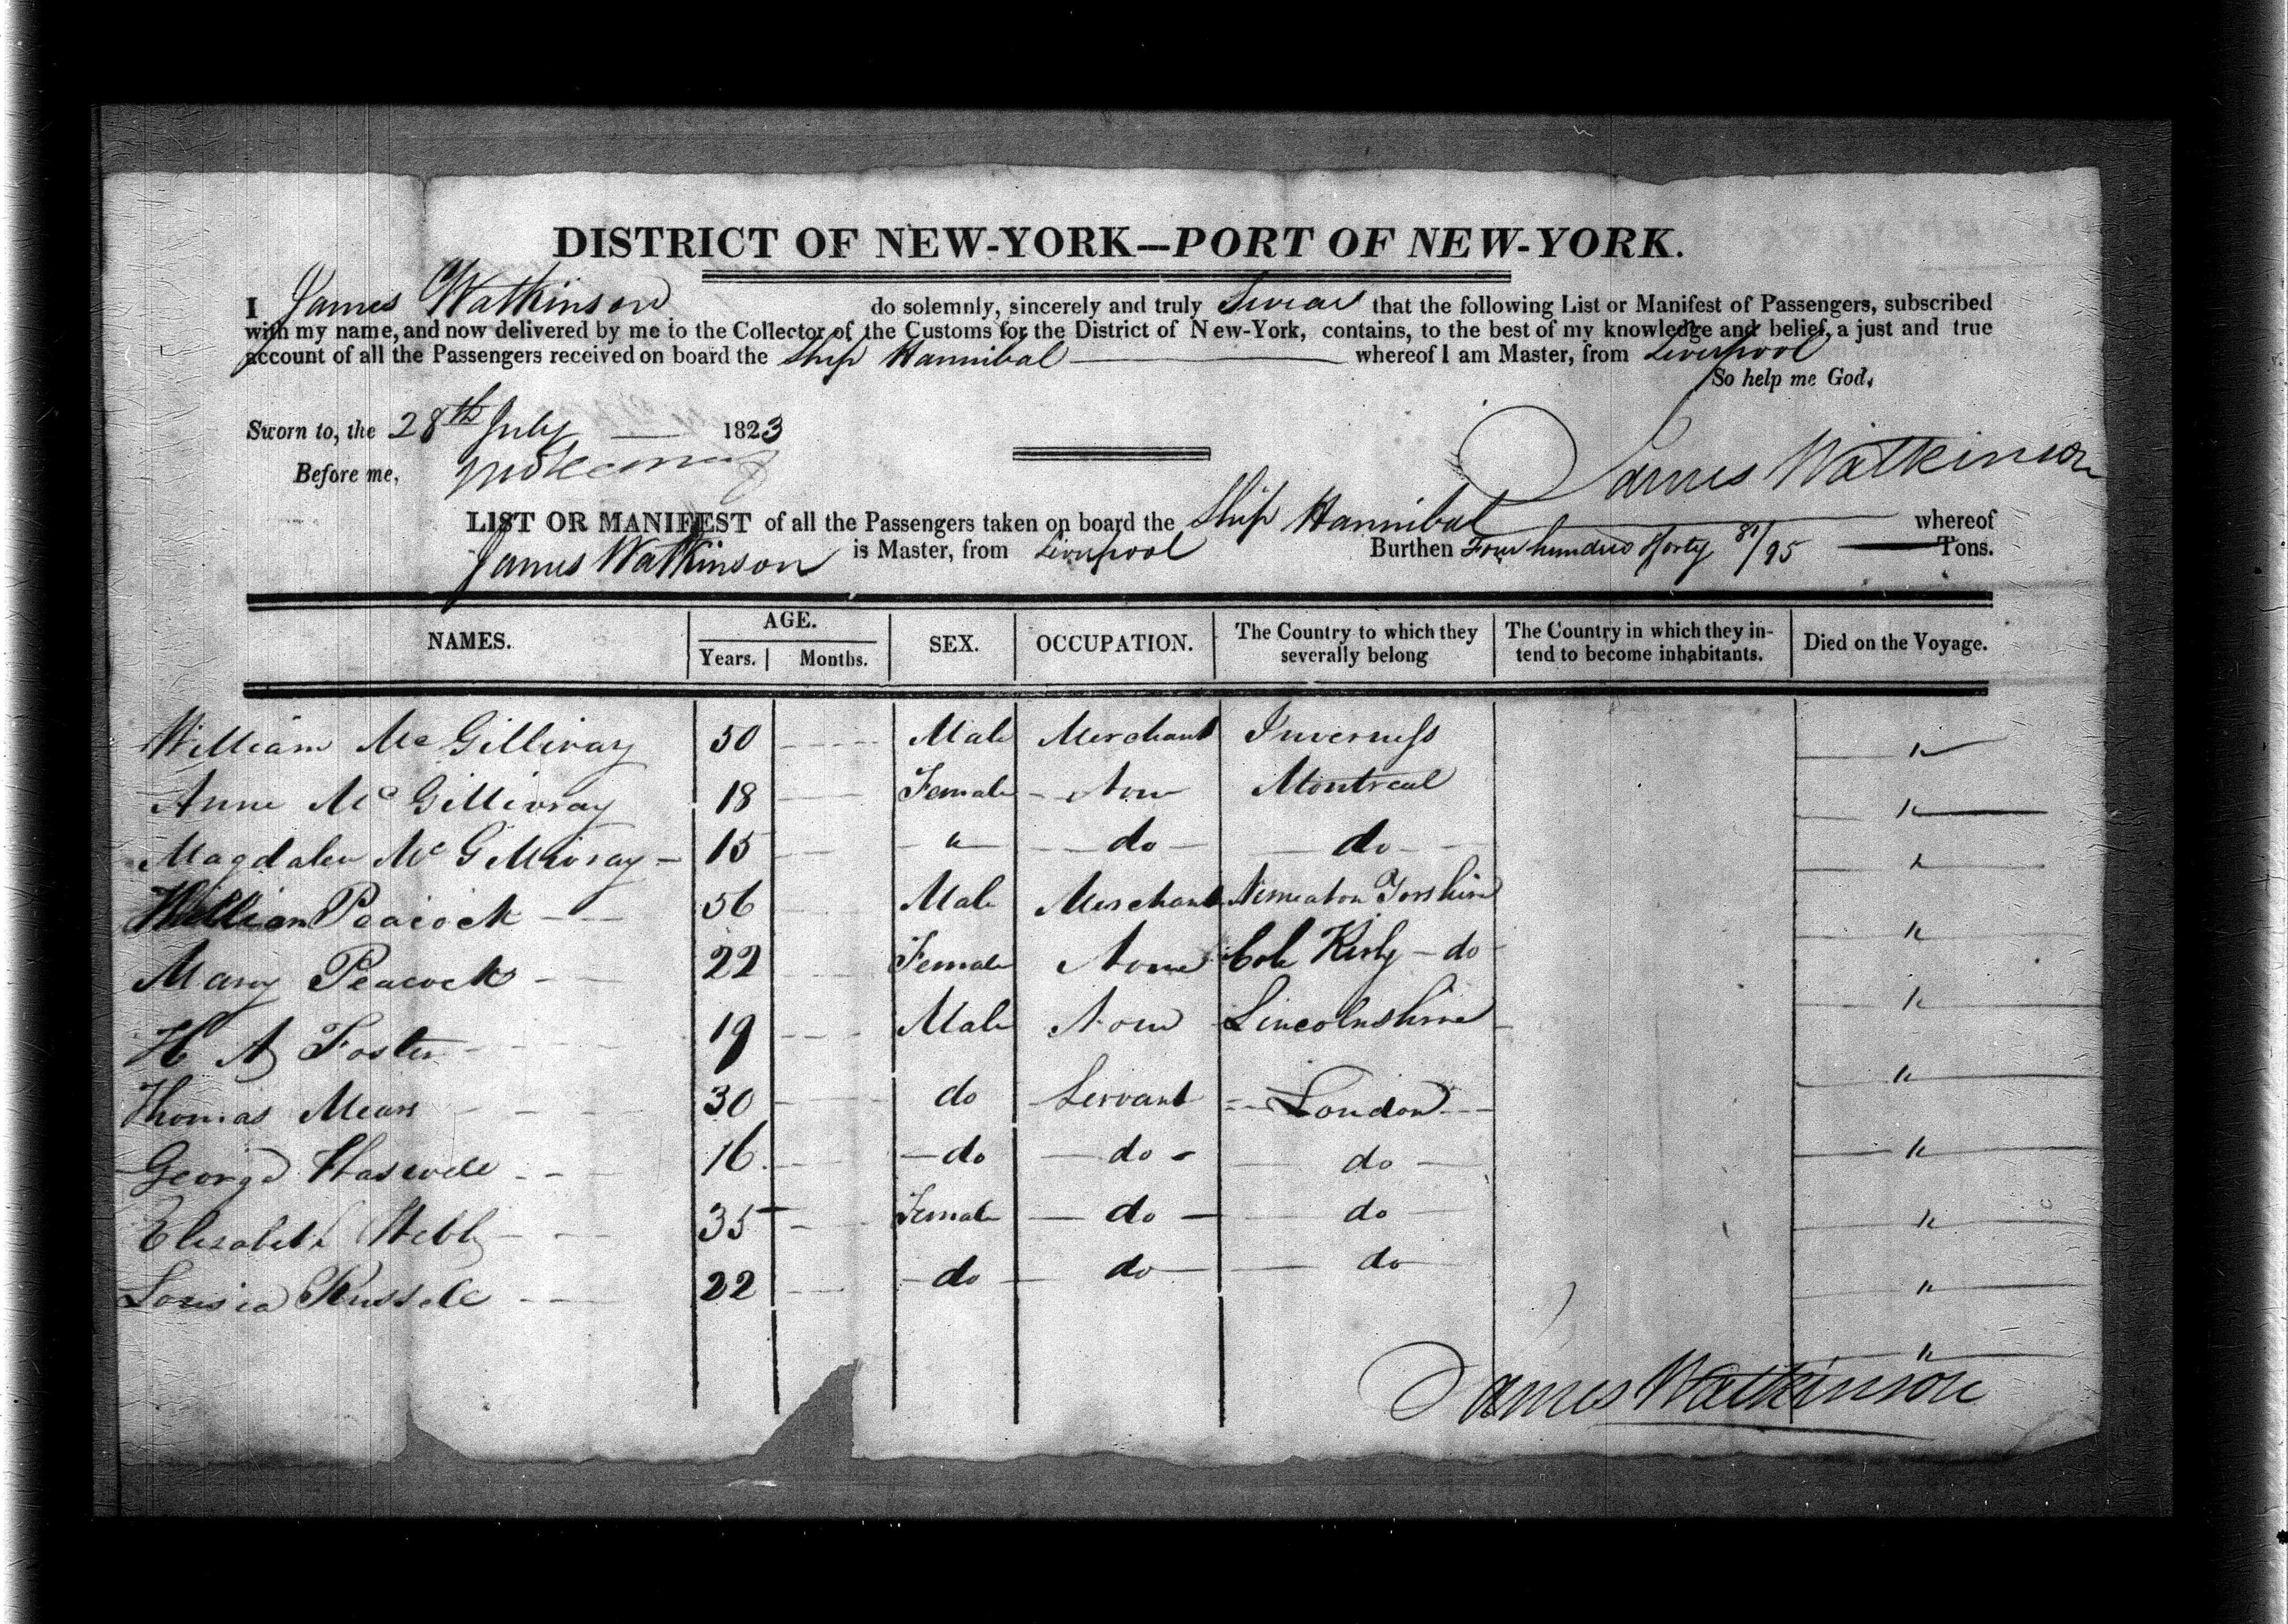 DISTRICT OF NEW-YORK—PORT OF NEW-YORK.
I James Watkinson do solemnly, sincerely and truly Swear that the following List or Manifest of Passengers, subscribed
with my name, and now delivered by me to the Collector of the Customs for the District of New-York, contains, to the best of my knowledge and belief, a just and true
account of all the Passengers received on board the Ship Hannibal whereof I am Master, from Liverpool
So help me God.
Sworn to, the 28th July 1823
Before me,
James Watkinson
LIST OR MANIFEST of all the Passengers taken on board the Ship Hannibal whereof
James Watkinson is Master, from Liverpool Burthen Four hundred Forty 81/95 Tons.
NAMES. AGE. SEX. OCCUPATION. The Country to which they severally belong The Country in which they intend to become inhabitants. Died on the Voyage.
Years. Months.
William McGillivray 50 Male Merchant Inverness "
Anne McGillivray 18 Female None Montreal "
Magdalen McGillivray 15 " do do "
William Peacock 56 Male Merchant "
Mary Peacock 22 Female None Kirby do "
H A Foster 19 Male None Lincolnshire "
Thomas Mears 30 do Servant London "
George Haswell 16 do do do "
Elizabeth Webb 35 Female do do "
Louisa Russell 22 do do do "
James Watkinson